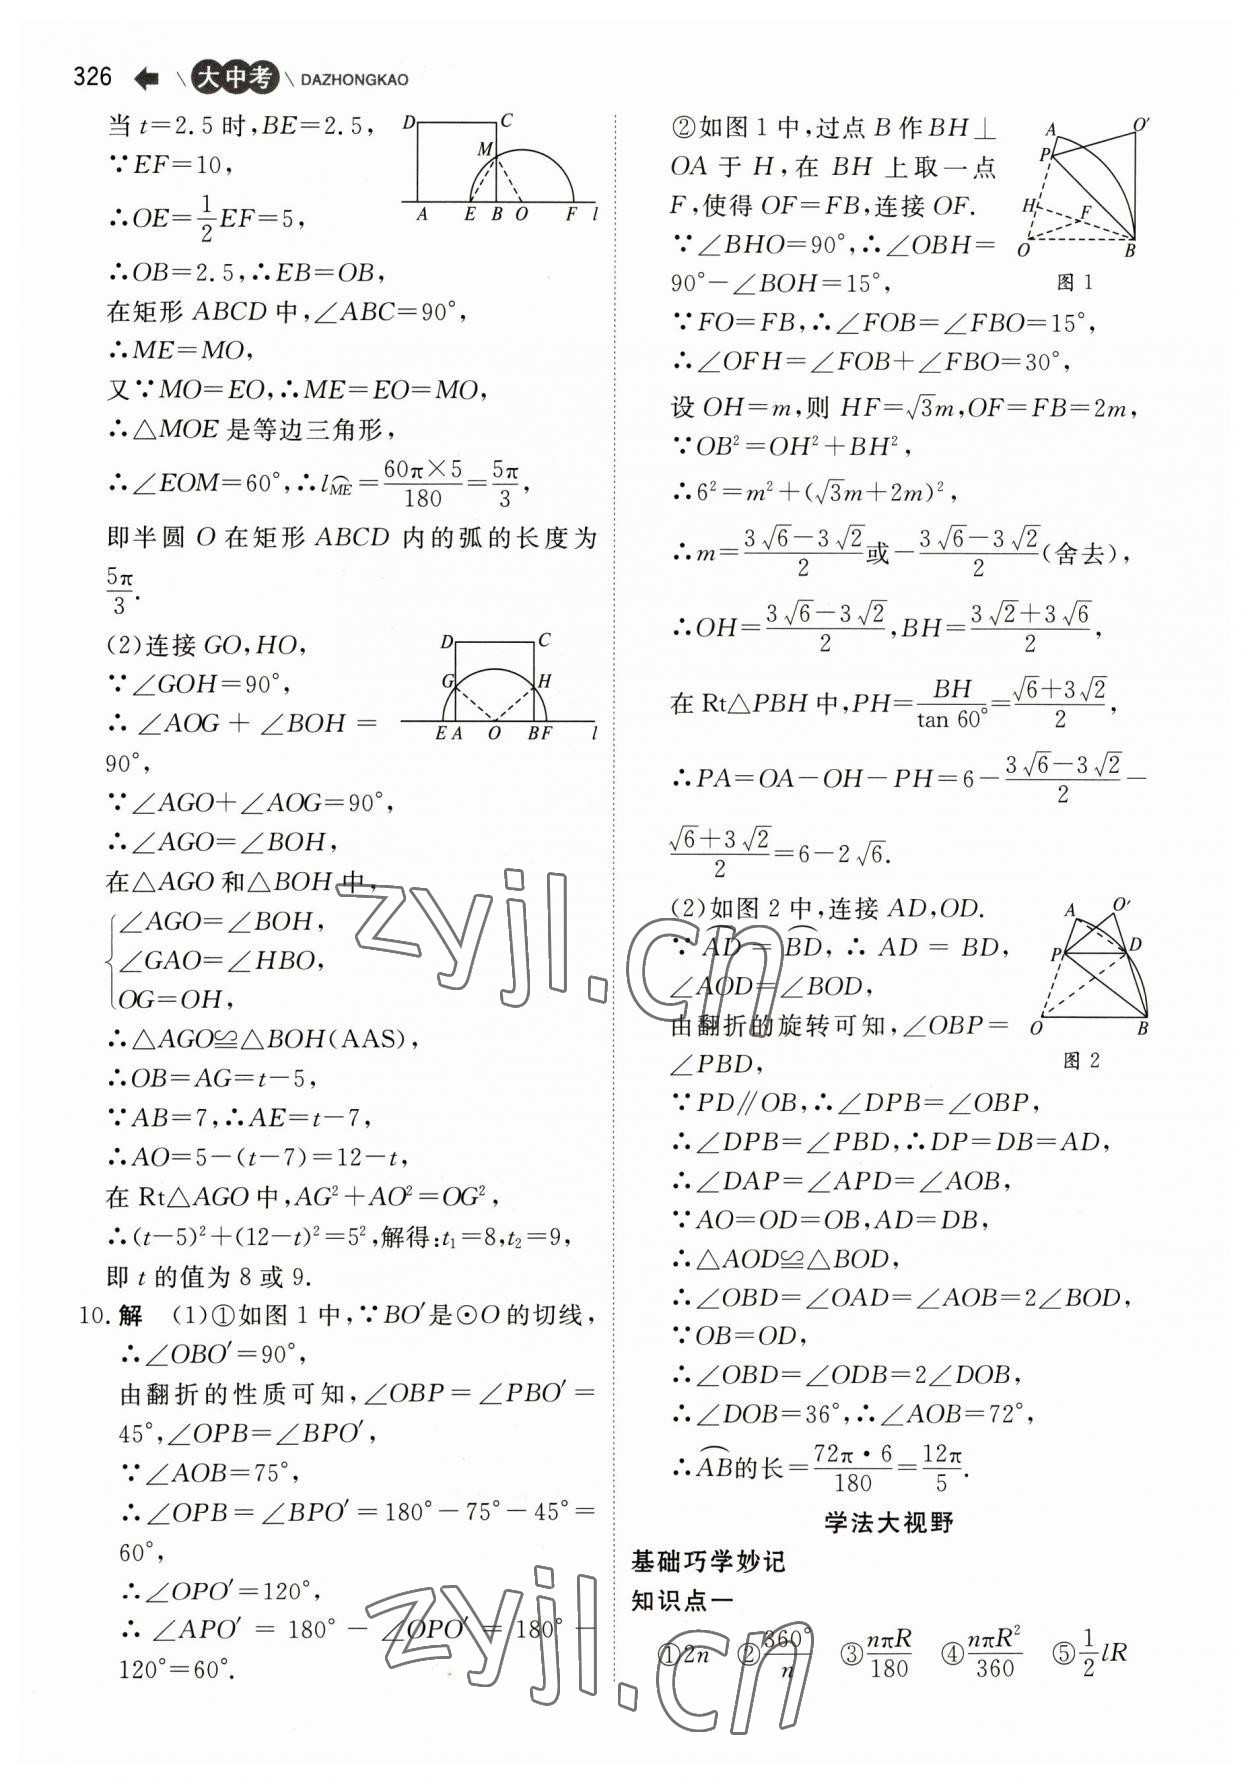 326 大中考 DAZHONGKAO
当 t=2.5 时,BE=2.5,
∵EF=10,
∴OE=1/2EF=5,
∴OB=2.5,∴EB=OB,
在矩形 ABCD 中,∠ABC=90°,
∴ME=MO,
又∵MO=EO,∴ME=EO=MO,
∴△MOE 是等边三角形,
∴∠EOM=60°,∴l⌢ME=60π×5/180=5π/3,
即半圆 O 在矩形 ABCD 内的弧的长度为
5π/3.
D C M A E B O F l
(2)连接 GO,HO,
∵∠GOH=90°,
∴ ∠AOG + ∠BOH =
90°,
D C G H E A O B F l
∵∠AGO+∠AOG=90°,
∴∠AGO=∠BOH,
在△AGO 和△BOH 中,
∠AGO=∠BOH,
∠GAO=∠HBO,
OG=OH,
∴△AGO≌△BOH(AAS),
∴OB=AG=t-5,
∵AB=7,∴AE=t-7,
∴AO=5-(t-7)=12-t,
在 Rt△AGO 中,AG²+AO²=OG²,
∴(t-5)²+(12-t)²=5²,解得:t₁=8,t₂=9,
即 t 的值为 8 或 9.
10. 解 (1)①如图 1 中,∵BO′是⊙O 的切线,
∴∠OBO′=90°,
由翻折的性质可知,∠OBP=∠PBO′=
45°,∠OPB=∠BPO′,
∵∠AOB=75°,
∴∠OPB=∠BPO′=180°-75°-45°=
60°,
∴∠OPO′=120°,
∴ ∠APO′ = 180° - ∠OPO′ = 180° -
120°=60°.
②如图 1 中,过点 B 作 BH⊥
OA 于 H,在 BH 上取一点
F,使得 OF=FB,连接 OF.
∵∠BHO=90°,∴∠OBH=
90°-∠BOH=15°,
A O′ P H F O B
图 1
∵FO=FB,∴∠FOB=∠FBO=15°,
∴∠OFH=∠FOB+∠FBO=30°,
设 OH=m,则 HF=√3m,OF=FB=2m,
∵OB²=OH²+BH²,
∴6²=m²+(√3m+2m)²,
∴m=(3√6-3√2)/2或-(3√6-3√2)/2(舍去),
∴OH=(3√6-3√2)/2,BH=(3√2+3√6)/2,
在 Rt△PBH 中,PH=BH/tan 60°=(√6+3√2)/2,
∴PA=OA-OH-PH=6-(3√6-3√2)/2-
(√6+3√2)/2=6-2√6.
(2)如图 2 中,连接 AD,OD.
∵⌢AD = ⌢BD, ∴ AD = BD,
∠AOD=∠BOD,
由翻折的旋转可知,∠OBP=
∠PBD,
A O′ P D O B
图 2
∵PD∥OB,∴∠DPB=∠OBP,
∴∠DPB=∠PBD,∴DP=DB=AD,
∴∠DAP=∠APD=∠AOB,
∵AO=OD=OB,AD=DB,
∴△AOD≌△BOD,
∴∠OBD=∠OAD=∠AOB=2∠BOD,
∵OB=OD,
∴∠OBD=∠ODB=2∠DOB,
∴∠DOB=36°,∴∠AOB=72°,
∴⌢AB的长=72π·6/180=12π/5.
学法大视野
基础巧学妙记
知识点一
①2n ②360°/n ③nπR/180 ④nπR²/360 ⑤1/2lR
zyjl.cn
zyjl.cn